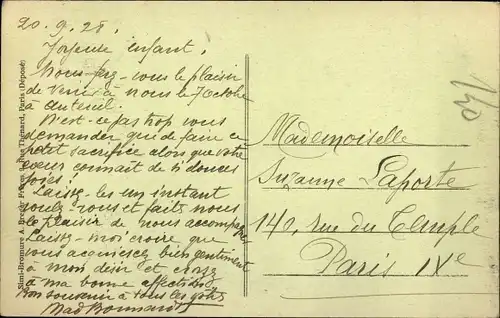 20.9.28.
Joyeuse enfant.
Nous ferez-vous le plaisir
de venir à nous le 7 octobre
à Auteuil.
N'est-ce pas trop vous
demander que de faire ce
petit sacrifice alors que votre
cœur connait de si douces
joies!
Laissez-les un instant
voulez-vous et faites nous
le plaisir de nous accompagner
Laissez-moi croire que
vous acquiescez bien gentiment
à mon désir et croyez
à ma bonne affection
Bon souvenir à tous les vôtres
Mad Bonnard
Simi-Bromure A. Breger Frères, 9, Rue Thénard, Paris (Déposé)
Mademoiselle
Suzanne Laporte
142, rue du Temple
Paris IXe